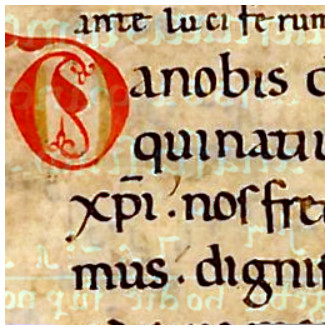 ante luciferum
Da nobis
qui natiu
xp̄i. nos fre
mus. digni